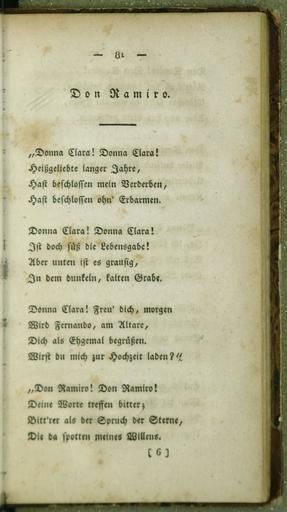 — 81 —
Don Ramiro.
„Donna Clara! Donna Clara!
Heißgeliebte langer Jahre,
Hast beschlossen mein Verderben,
Hast beschlossen ohn' Erbarmen.
Donna Clara! Donna Clara!
Ist doch süß die Lebensgabe!
Aber unten ist es grausig,
In dem dunkeln, kalten Grabe.
Donna Clara! Freu' dich, morgen
Wird Fernando, am Altare,
Dich als Ehgemal begrüßen.
Wirst du mich zur Hochzeit laden?“
„Don Ramiro! Don Ramiro!
Deine Worte treffen bitter;
Bitt'rer als der Spruch der Sterne,
Die da spotten meines Willens.
[ 6 ]